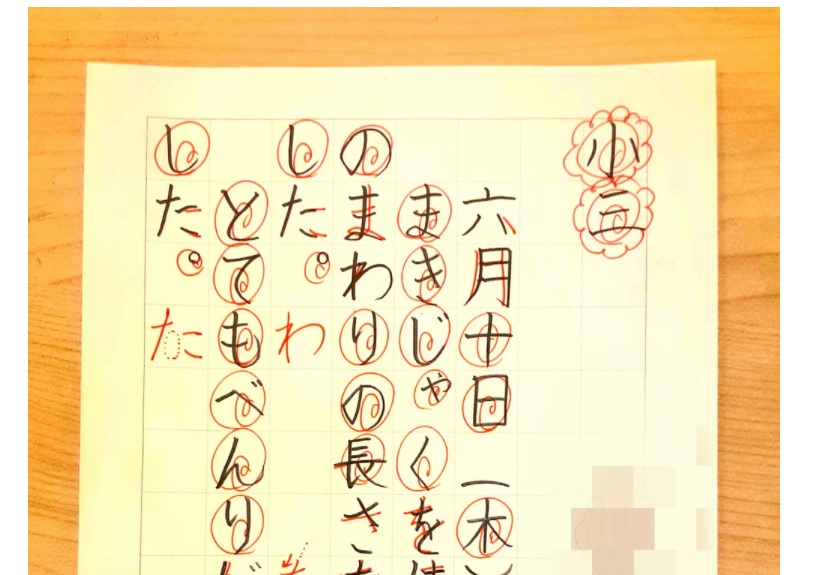 小三
六月十日(木)
まきじゃくを
のまわりの長さ
した。 わ
とてもべんり
した。 た